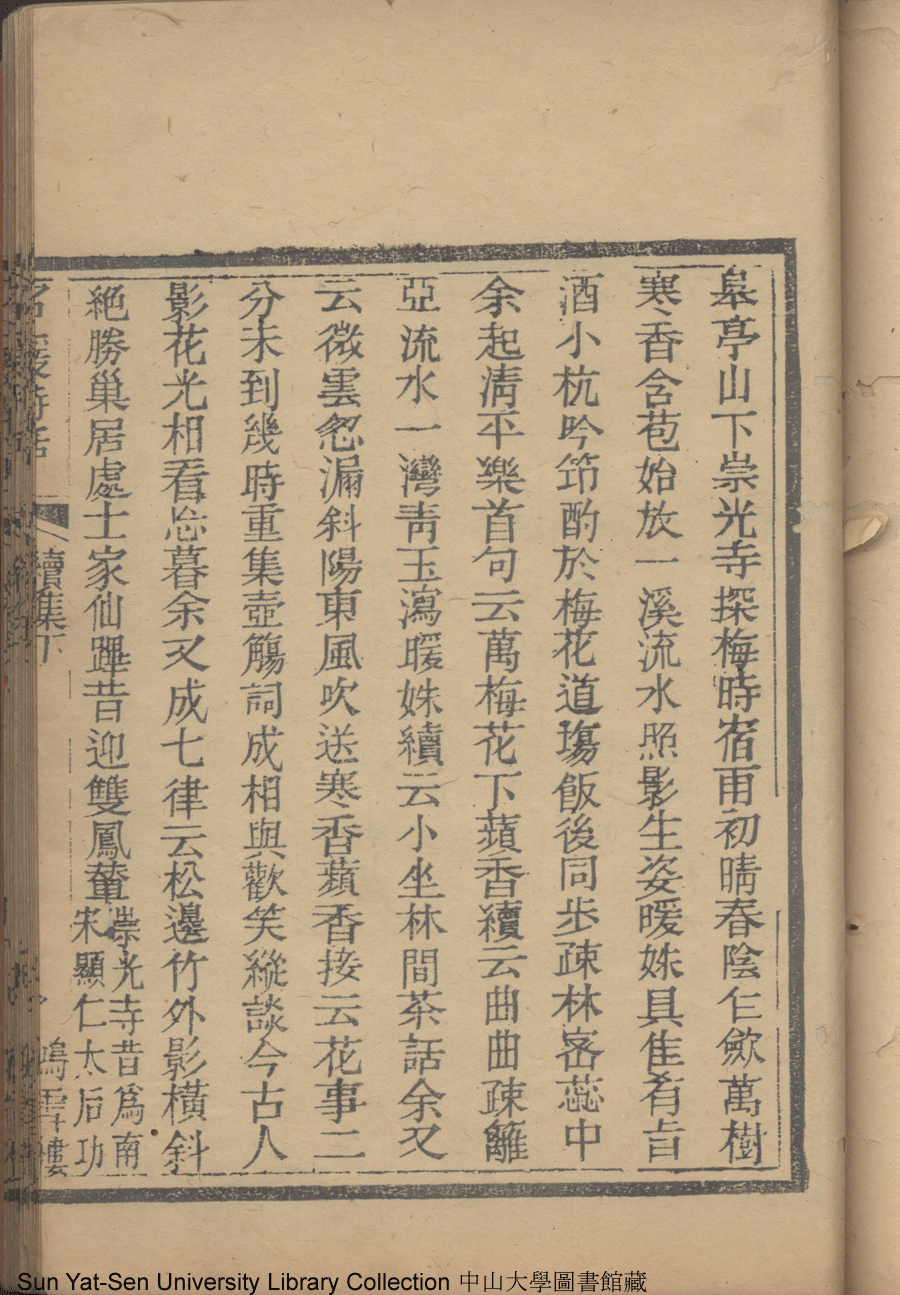 皋亭山下崇光寺探梅時宿雨初晴春陰乍歛萬樹
寒香含苞始放一溪流水照影生姿暖姝具隹肴旨
酒小杭吟筇酌於梅花道塲飯後同步疎林宻蕊中
余起淸平樂首句云萬梅花下蘋香續云曲曲疎籬
亞流水一灣靑玉瀉暖姝續云小坐林間茶話余又
云微雲忽漏斜陽東風吹送寒香蘋香接云花事二
分未到幾時重集壺觴詞成相與歡笑縱談今古人
影花光相看忘暮余又成七律云松邊竹外影橫斜
絶勝巢居處士家仙蹕昔迎雙鳳輦
崇光寺昔爲南
宋顯仁太后功
名媛詩話
續集下
鳴雪樓
Sun Yat-Sen University Library Collection 中山大學圖書館藏